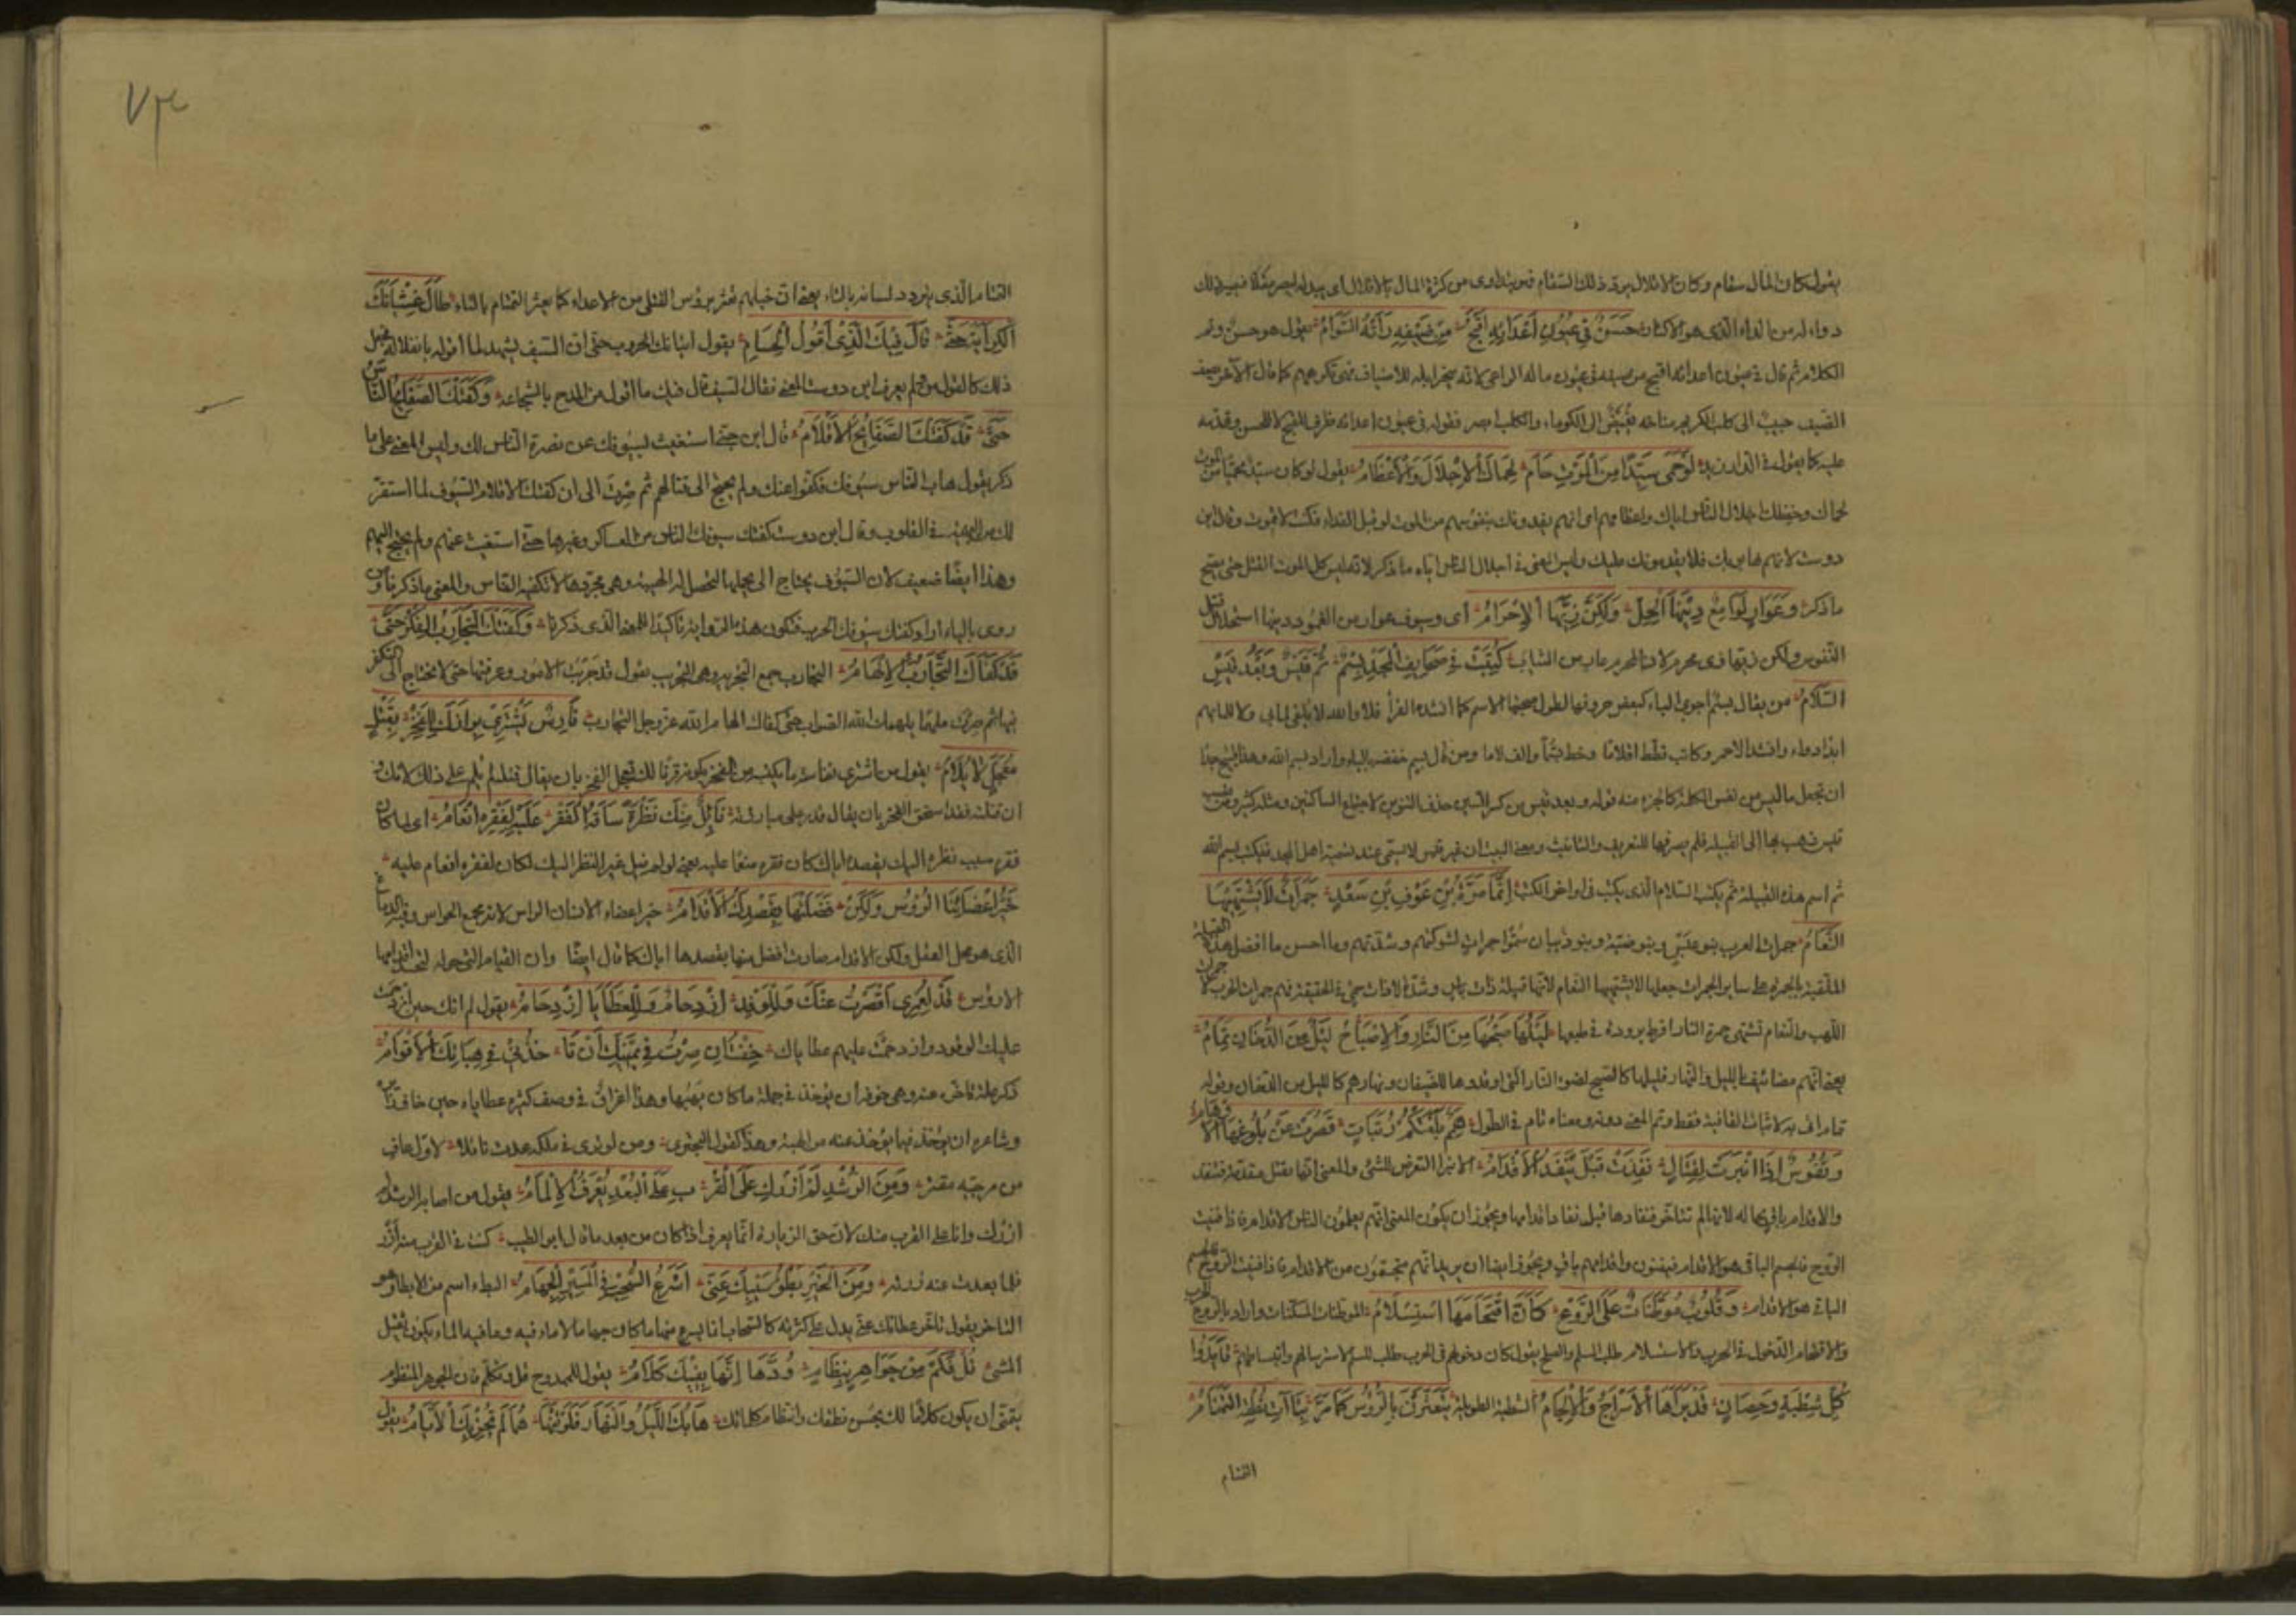 يقول كان المال سقام وكان الاقلال برؤ ذلك السقام فهو يتداوى من كثرة المال بالاقلال اى
دواء له من الداء الذى هو الاكثار حَسَنٌ فِي عُيُونِ أَعْدَائِهِ أَقْبَحُ مِنْ ضَيْفِهِ رَأَتْهُ السَّوَامُ يقول هو حسن وتم
الكلام ثم قال فى عيون اعدائه اقبح من ضيفه فى عيون ماله الراعى لانه ينحر ابله للاضياف فهى تكرههم كما قال الآخر
الضيف حبيب الى كلب الكريم مناخه بغيض الى الكوماء والكلب ابصر فقوله فى عيون اعدائه ظرف للقبح لا للحسن وقدمه
عليه كما يقول فى الدار زيد لَوْ حَمَى سَيِّدًا مِنَ الْمَوْتِ حَامٍ لَحَمَاكَ الْإِجْلَالُ وَالْإِعْظَامُ يقول لو كان سيد محميا من الموت
لحماك وحفظك اجلال الناس اياك واعظامهم اى انهم يفدونك بنفوسهم من الموت لو قبل الفداء فكنت لا تموت وقال ابن
دوست لانهم هابوك فلا يقدمون عليك وليس المعنى فى اجلال الناس اياه ما ذكر لانه ليس كل الموت القتل حتى يصح
ما ذكر وَعَوَارٍ لَوَامِعٌ دِينُهَا الْحِلُّ وَلَكِنَّ زِيَّهَا الْإِحْرَامُ اى وسيوف عوار من الغمود دينها استحلال قتل
النفوس ولكن زيها زى محرم لان المحرم عار من الثياب كُتِبَتْ فِي صَحَائِفِ الْمَجْدِ بِسْمٌ ثُمَّ قَيْسٌ وَبَعْدَ قَيْسَ
السَّلَامُ من يقال بسم اجرى الباء كبعض حروفها لطول صحبتها الاسم كما انشد الفراء فلا والله لا يلفى لما بى ولا للما بهم
ابدا دواء وانشد الاحمر وكاتب قطط اقلاما وخط بسما والف لاما ومن قال بسم خفضه بالباء واراد بسم الله وهذا قبيح جدا
ان تجعل ما ليس من نفس الكلمة كالجزء منه قوله وبعد قيس من كسر السين حذف التنوين لاجتماع الساكنين ومثله كثير ومن نصب
قيس ذهب بها الى القبيلة فلم يصرفها للتعريف والتأنيث ومعنى البيت ان غير قيس لا يسمى عند تسمية اهل المجد فيكتب بسم الله
ثم اسم هذه القبيلة ثم يكتب السلام الذى يكتب فى اواخر الكتب إِنَّمَا مُرَّةُ بْنُ عَوْفِ بْنِ سَعْدٍ جَمَرَاتٌ لَا تَشْتَهِيهَا
النَّعَامُ جمرات العرب بنو عبس وبنو ضبة وبنو ذبيان سموا جمرات لشوكتهم وشدتهم وما احسن ما افضل هذه القبيلة
الملقبة بالجمرة على ساير الجمرات جعلها لا تشتهيها النعام لانها قبيلة ذات باس
اللهب والنعام تشتهى جمرة النار لفرط برودة فى طبعها لَيْلُهَا صُبْحُهَا مِنَ النَّارِ وَالْإِصْبَاحُ لَيْلٌ مِنَ الدُّخَانِ تِمَامُ
يعنى انهم مضائيف بالليل والنهار فليلها كالصبح لضوء النار التى اوقدوها للضيفان ونهارهم كالليل من الدخان وقوله
تمام اتى به لاثبات القافية فقط وتم المعنى دونه ومعناه تام فى الطول هِمَمٌ بَلَّغَتْكُمُ رُتَبَاتٍ قَصُرَتْ عَنْ بُلُوغِهَا الْأَوْهَامُ
وَنُفُوسٌ إِذَا انْبَرَتْ لِقِتَالٍ نَفِدَتْ قَبْلَ يَنْفَدُ الْإِقْدَامُ الانبراء التعرض للشئ والمعنى انها تقتل مقدمة فتنفد
والاقدام باق بحاله لانها لم تتأخر فنفادها قبل نفاد اقدامها ويجوز ان يكون المعنى انهم يعلمون الناس الاقدام فاذا فنيت
الروح فالجسم الباقى هو الاقدام فيفنون واقدامهم باق ويجوز ايضا ان يريد انهم متجسمون من الاقدام فاذا فنيت الروح فالجسم
الباقى هو الاقدام وَقُلُوبٌ مُوَطَّنَاتٌ عَلَى الرَّوْعِ كَأَنَّ اقْتِحَامَهَا اسْتِسْلَامُ الموطنات المسكنات واراد بالروع الحرب
والاقتحام الدخول فى الحرب والاستسلام طلب السلم والصلح يقول كان دخولهم فى الحرب طلب للسلم لاسترسالهم وانبساطهم قَائِدُوا
كُلِّ شَطْبَةٍ وَحِصَانٍ قَدْ بَرَاهَا الْإِسْرَاجُ وَالْإِلْجَامُ الشطبة الطويلة يَتَعَثَّرْنَ بِالرُّؤُسِ كَمَا مَرَّ بِتَاآتِ نُطْقِهِ التَّمْتَامُ
التمتام
٧٣
التمتام الذى يتردد لسانه بالتاء يعنى ان خيلهم تعثر برؤس القتلى من الاعداء كما يعثر التمتام بالتاء طَالَ غِشْيَانُكَ
الْكَرَائِهَ حَتَّى قَالَ فِيكَ الَّذِي أَقُولُ الْحُسَامُ يقول اتيانك الحروب حتى ان السيف ليشهد لما اقوله بانفلاله فجعل
ذلك كالقول منه ولم يعرف ابن دوست المعنى فقال السيف قال فيك ما اقول من المدح بالشجاعة وَكَفَتْكَ الصَّفَائِحُ النَّاسَ
حَتَّى قَدْ كَفَتْكَ الصَّفَائِحَ الْأَقْلَامُ قال ابن جنى استغنيت بسيوفك عن نصرة الناس لك وليس المعنى على ما
ذكر يقول هاب الناس سيوفك فكفوا عنك ولم تحتج الى قتالهم ثم صرت الى ان كفتك الاقلام السيوف لما استقر
لك من الهيبة فى القلوب وقال ابن دوست كفتك سيوفك الناس من العساكر وغيرها حتى استغنيت عنهم ولم تحتج اليهم
وهذا ايضا ضعيف لان السيوف يحتاج الى حملها لتحصل له الهيبة وهى مجردها لا تكفيه الناس والمعنى ما ذكرنا ومن
روى بالباء اراد كفتك سيوفك الحرب فتكون هذه الرواية تاكيدا للمعنى الذى ذكرنا وَكَفَتْكَ التَّجَارِبُ الْفِكْرَ حَتَّى
قَدْ كَفَاكَ التَّجَارِبَ الْإِلْهَامُ التجارب جمع التجربة وهى التجريب يقول قد جربت الامور وعرفتها حتى لا تحتاج الى التفكر
فيها ثم صرت ملهما يلهمك الله الصواب حتى كفاك الهام الله عز وجل التجارب فَارِسٌ يَشْتَرِي بِرَازَكَ لِلْفَخْرِ بِقَتْلٍ
مُعَجَّلٍ لَا يُلَامُ يقول من اشترى
ان قتلته فقد استحق الفخر بان يقال قدر على مبارزته نَائِلٌ مِنْكَ نَظْرَةً سَاقَهُ الْفَقْرُ عَلَيْهِ لِفَقْرِهِ إِنْعَامُ اى لما كان
فقره سبب نظره اليك بقصده اياك كان فقره منعما عليه يعنى لو لم ينل غير النظر اليك لكان لفقره انعام عليه
خَيْرُ أَعْضَائِنَا الرُّؤُسُ وَلَكِنْ فَضَلَتْهَا بِقَصْدِكَ الْأَقْدَامُ خير اعضاء الانسان الراس لانه مجمع الحواس وفيه الدماغ
الذى هو محل العقل ولكن الاقدام صارت افضل منها بقصدها اياك كما قال ايضا وان القيام التى حوله لتحسد اقدامها
الارؤس قَدْ لَعَمْرِي أَقْصَرْتُ عَنْكَ وَلِلْوَفْدِ ازْدِحَامٌ وَلِلْعَطَايَا ازْدِحَامُ يقول لم اتك حين ازدحمت
عليك الوفود وازدحمت عليهم عطاياك خِفْتُ إِنْ صِرْتُ فِي يَمِينِكَ أَنْ تَأْخُذَنِي فِي هِبَاتِكَ الْأَقْوَامُ
ذكر علة تاخره عنه وهى خوفه ان يؤخذ فى جملة ما كان يهبها وهذا اغراق فى وصف كثرة عطاياه حين خاف
وشاعره ان يؤخذ فيما يؤخذ عنه من الهبة وهذا كقول البحترى ومن لو ترى فى ملكه عدت نائلا لاول عاف
من مرجيه مقتر وَمِنَ الرُّشْدِ لَمْ أَزُرْكَ عَلَى الْقُرْبِ عَلَى الْبُعْدِ يُعْرَفُ الْإِلْمَامُ يقول من اصابة الرشد لم
ازرك وانا على القرب منك لان حق الزيارة انما يعرف اذا كان من بعد ما قال ابو الطيب كنت فى القرب منه ازر
فلما بعدت عنه زرته وَمِنَ الْخَيْرِ بُطْؤُ سَيْبِكَ عَنِّي أَسْرَعُ السُّحْبِ فِي الْمَسِيرِ الْجَهَامُ البطء اسم من الابطاء وهو
التاخر يقول تاخر عطائك عنى يدل على كثرته كالسحاب انما يسرع منها ما كان جهاما لا ماء فيه وما فيه الماء يكون ثقيل
المشى قُلْ فَكَمْ مِنْ جَوَاهِرٍ بِنِظَامٍ وُدُّهَا أَنَّهَا بِفِيكَ كَلَامُ يقول للممدوح قل وتكلم فان الجوهر المنظوم
يتمنى ان يكون كلاما لك لحسن نطقك وانتظام كلماتك هَابَكَ اللَّيْلُ وَالنَّهَارُ فَلَوْ تَنْهَاهُمَا لَمْ تَجُزْ بِكَ الْأَيَّامُ يقول